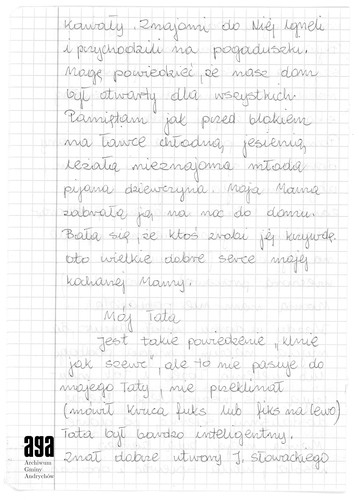 kawały. Znajomi do Niej lgnęli
i przychodzili na pogaduszki.
Mogę powiedzieć, że nasz dom
był otwarty dla wszystkich.
Pamiętam jak przed blokiem
na ławce chłodną, jesienią,
leżała nieznajoma młoda
pijana dziewczyna. Moja Mama
zabrała ją na noc do domu.
Bała się, że ktoś zrobi jej krzywdę.
Oto wielkie dobre serce mojej
kochanej Mamy.
Mój Tata
Jest takie powiedzenie "klnie
jak szewc", ale to nie pasuje do
mojego Taty, nie przeklinał
(mówił kruca fuks lub fiks na lewo)
Tata był bardzo inteligentny.
Znał dobrze utwory J. Słowackiego
aga
Archiwum
Gminy
Andrychów